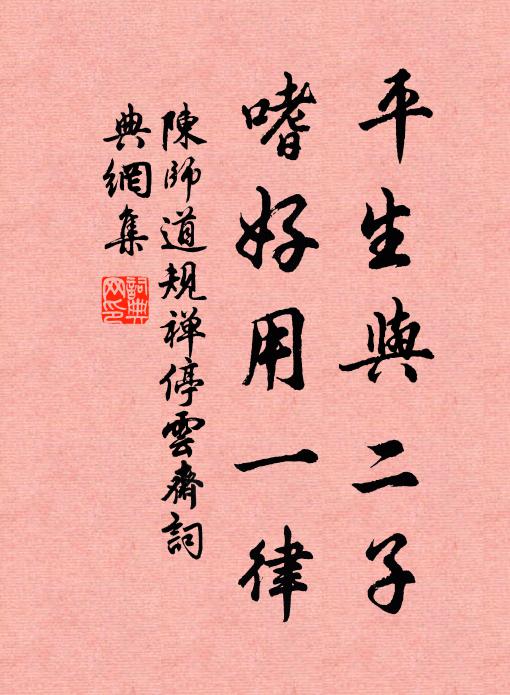 平生與二子
嗜好用一律
陳師道規禅停雲齋詞
典網集
詞典
网印